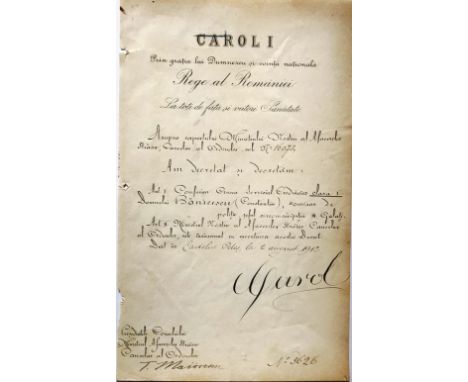 CAROL I
Prin grația lui Dumnezeu și voința națională
Rege al României
La toți de față și viitori Sănătate
Asupra raportului Ministrului Nostru al Afacerilor
Străine, Cancelar al Ordinelor, sub No
Am decretat și decretăm:
Art. I Conferim Crucea Serviciul Credincios clasa I
Domnului (Constantin), comisar de
poliție șeful circumscripției Galați.
Art. II Ministrul Nostru al Afacerilor Străine Cancelar
al Ordinelor, este însărcinat cu executarea acestui Decret.
Dat în Castelul Peleș, la 2 august 1912
Carol
Președintele Consiliului
Ministrul Afacerilor Străine
Cancelar al Ordinelor
T. Maiorescu
No 3626